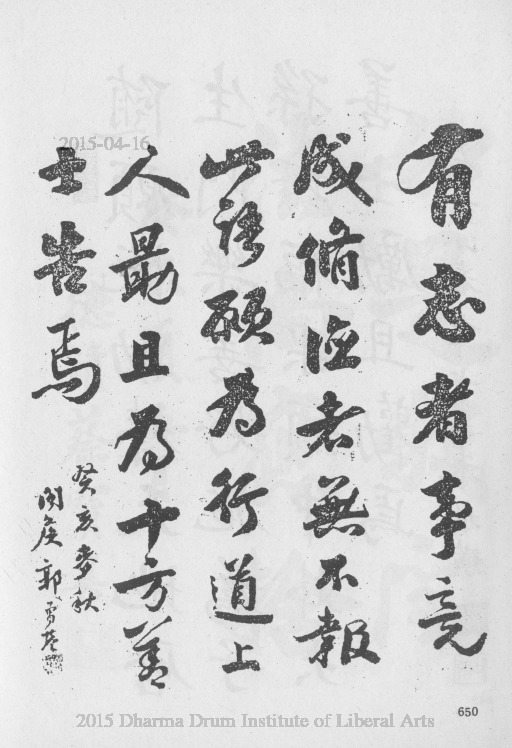 有志者事竟
成脩德者無不報
此語願為行道上
人勗且為十方善
士告焉
癸亥麥秋
閩侯郭
2015-04-16
650
2015 Dharma Drum Institute of Liberal Arts